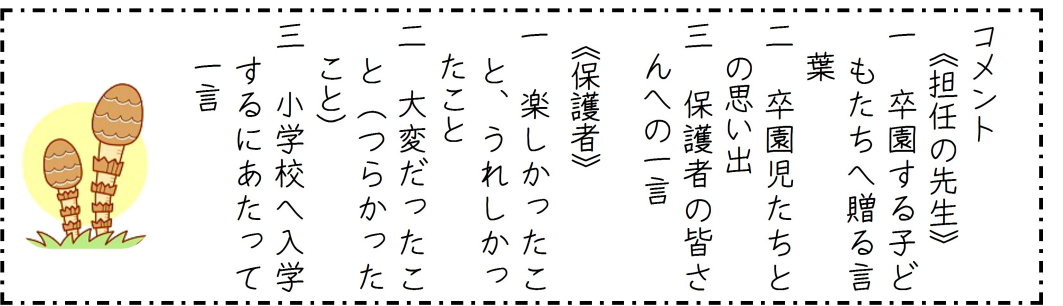 コメント
《担任の先生》
一　卒園する子ど
もたちへ贈る言
葉
二　卒園児たちと
の思い出
三　保護者の皆さ
んへの一言
《保護者》
一　楽しかったこ
と、うれしかっ
たこと
二　大変だったこ
と（つらかった
こと）
三　小学校へ入学
するにあたって
一言